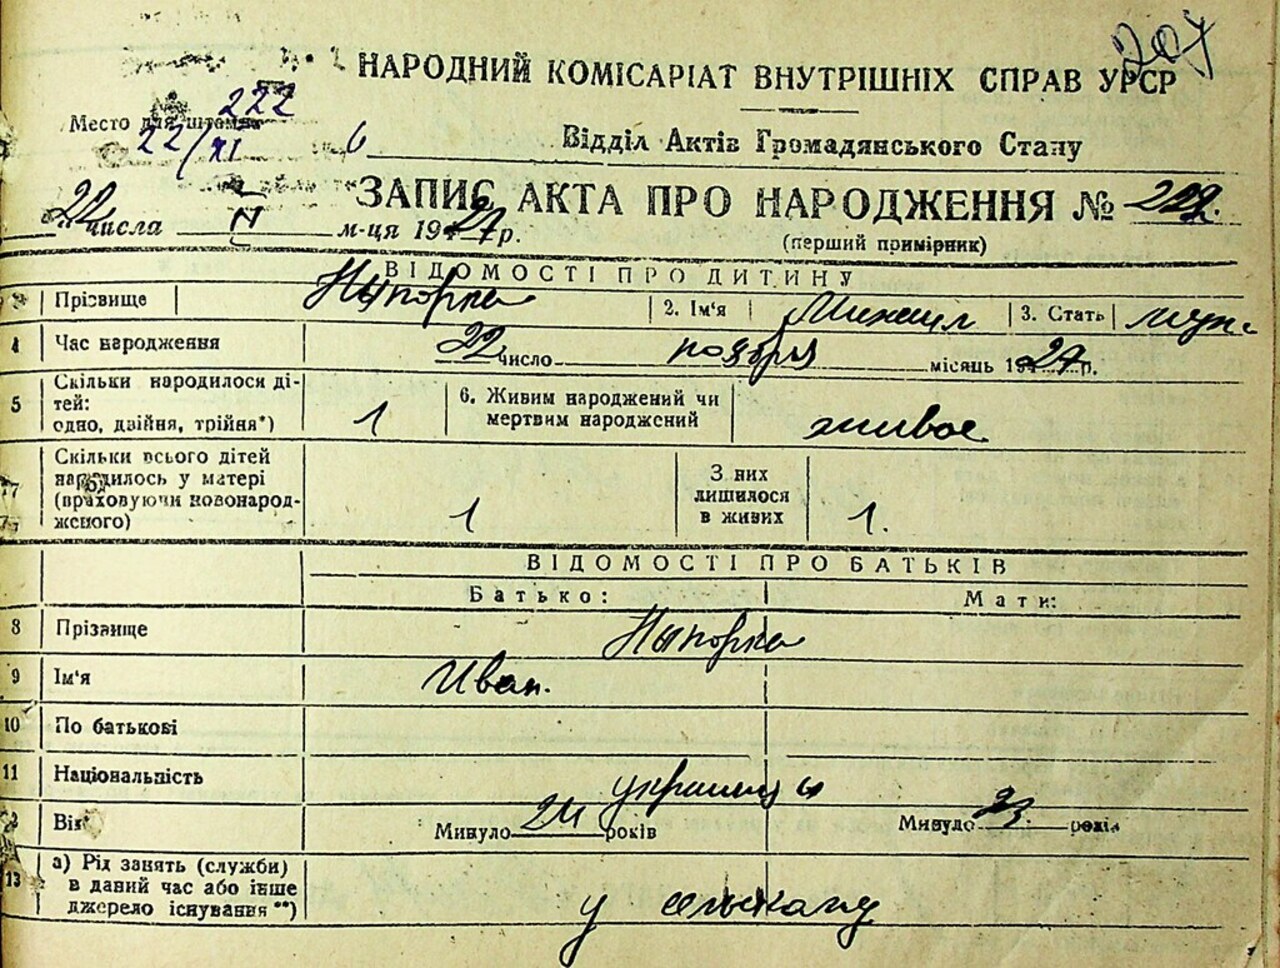 207
НАРОДНИЙ КОМІСАРІАТ ВНУТРІШНІХ СПРАВ УРСР
222
Место для штампа
22/XI
6
Відділ Актів Громадянського Стану
ЗАПИС АКТА ПРО НАРОДЖЕННЯ №
22 числа XI м-ця 1927 р.
(перший примірник)
ВІДОМОСТІ ПРО ДИТИНУ
Прізвище Ныпорка 2. Ім'я Михаил 3. Стать муж.
4 Час народження 22 число ноября місяць 1927 р.
Скільки народилося ді-
5 тей: 1 6. Живим народжений чи мертвим народжений живое
одно, двійня, трійня*)
Скільки всього дітей
7 народилось у матері
(враховуючи новонарод-
женого) 1 З них лишилося в живих 1.
ВІДОМОСТІ ПРО БАТЬКІВ
Батько: Мати:
8 Прізвище Ныпорка
9 Ім'я Иван.
10 По батькові
11 Національність украинцы
Вік Минуло 24 років Минуло 23 років
а) Рід занять (служби)
13 в даний час або інше
джерело існування**) у